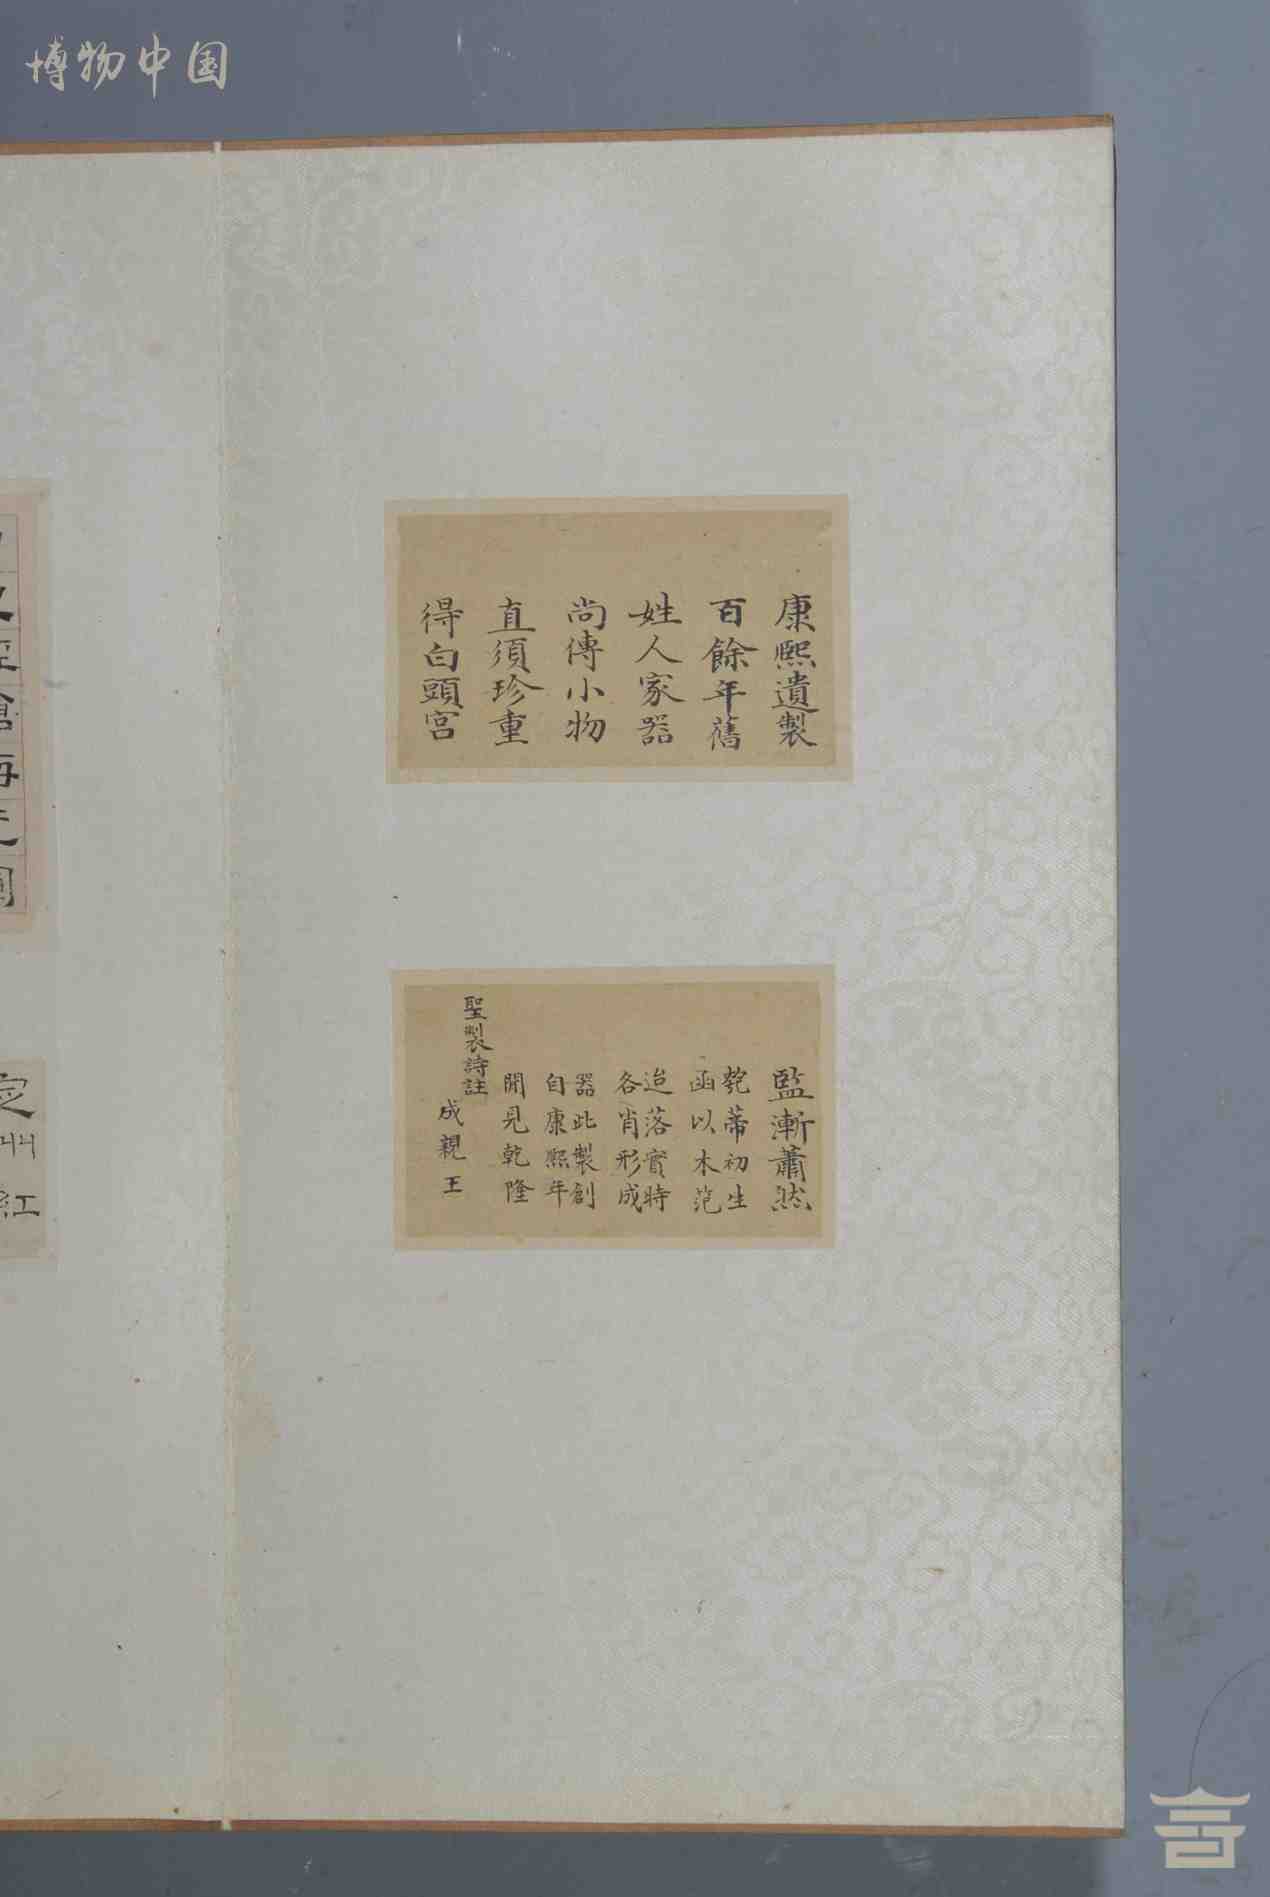 博物中国
康熙遺製
百餘年舊
姓人家器
尚傳小物
直須珍重
得白頭宮
監漸蕭然
匏蒂初生
函以木范
迨落實時
各肖形成
器此製創
自康熙年
閒見乾隆
聖製詩註
成親王